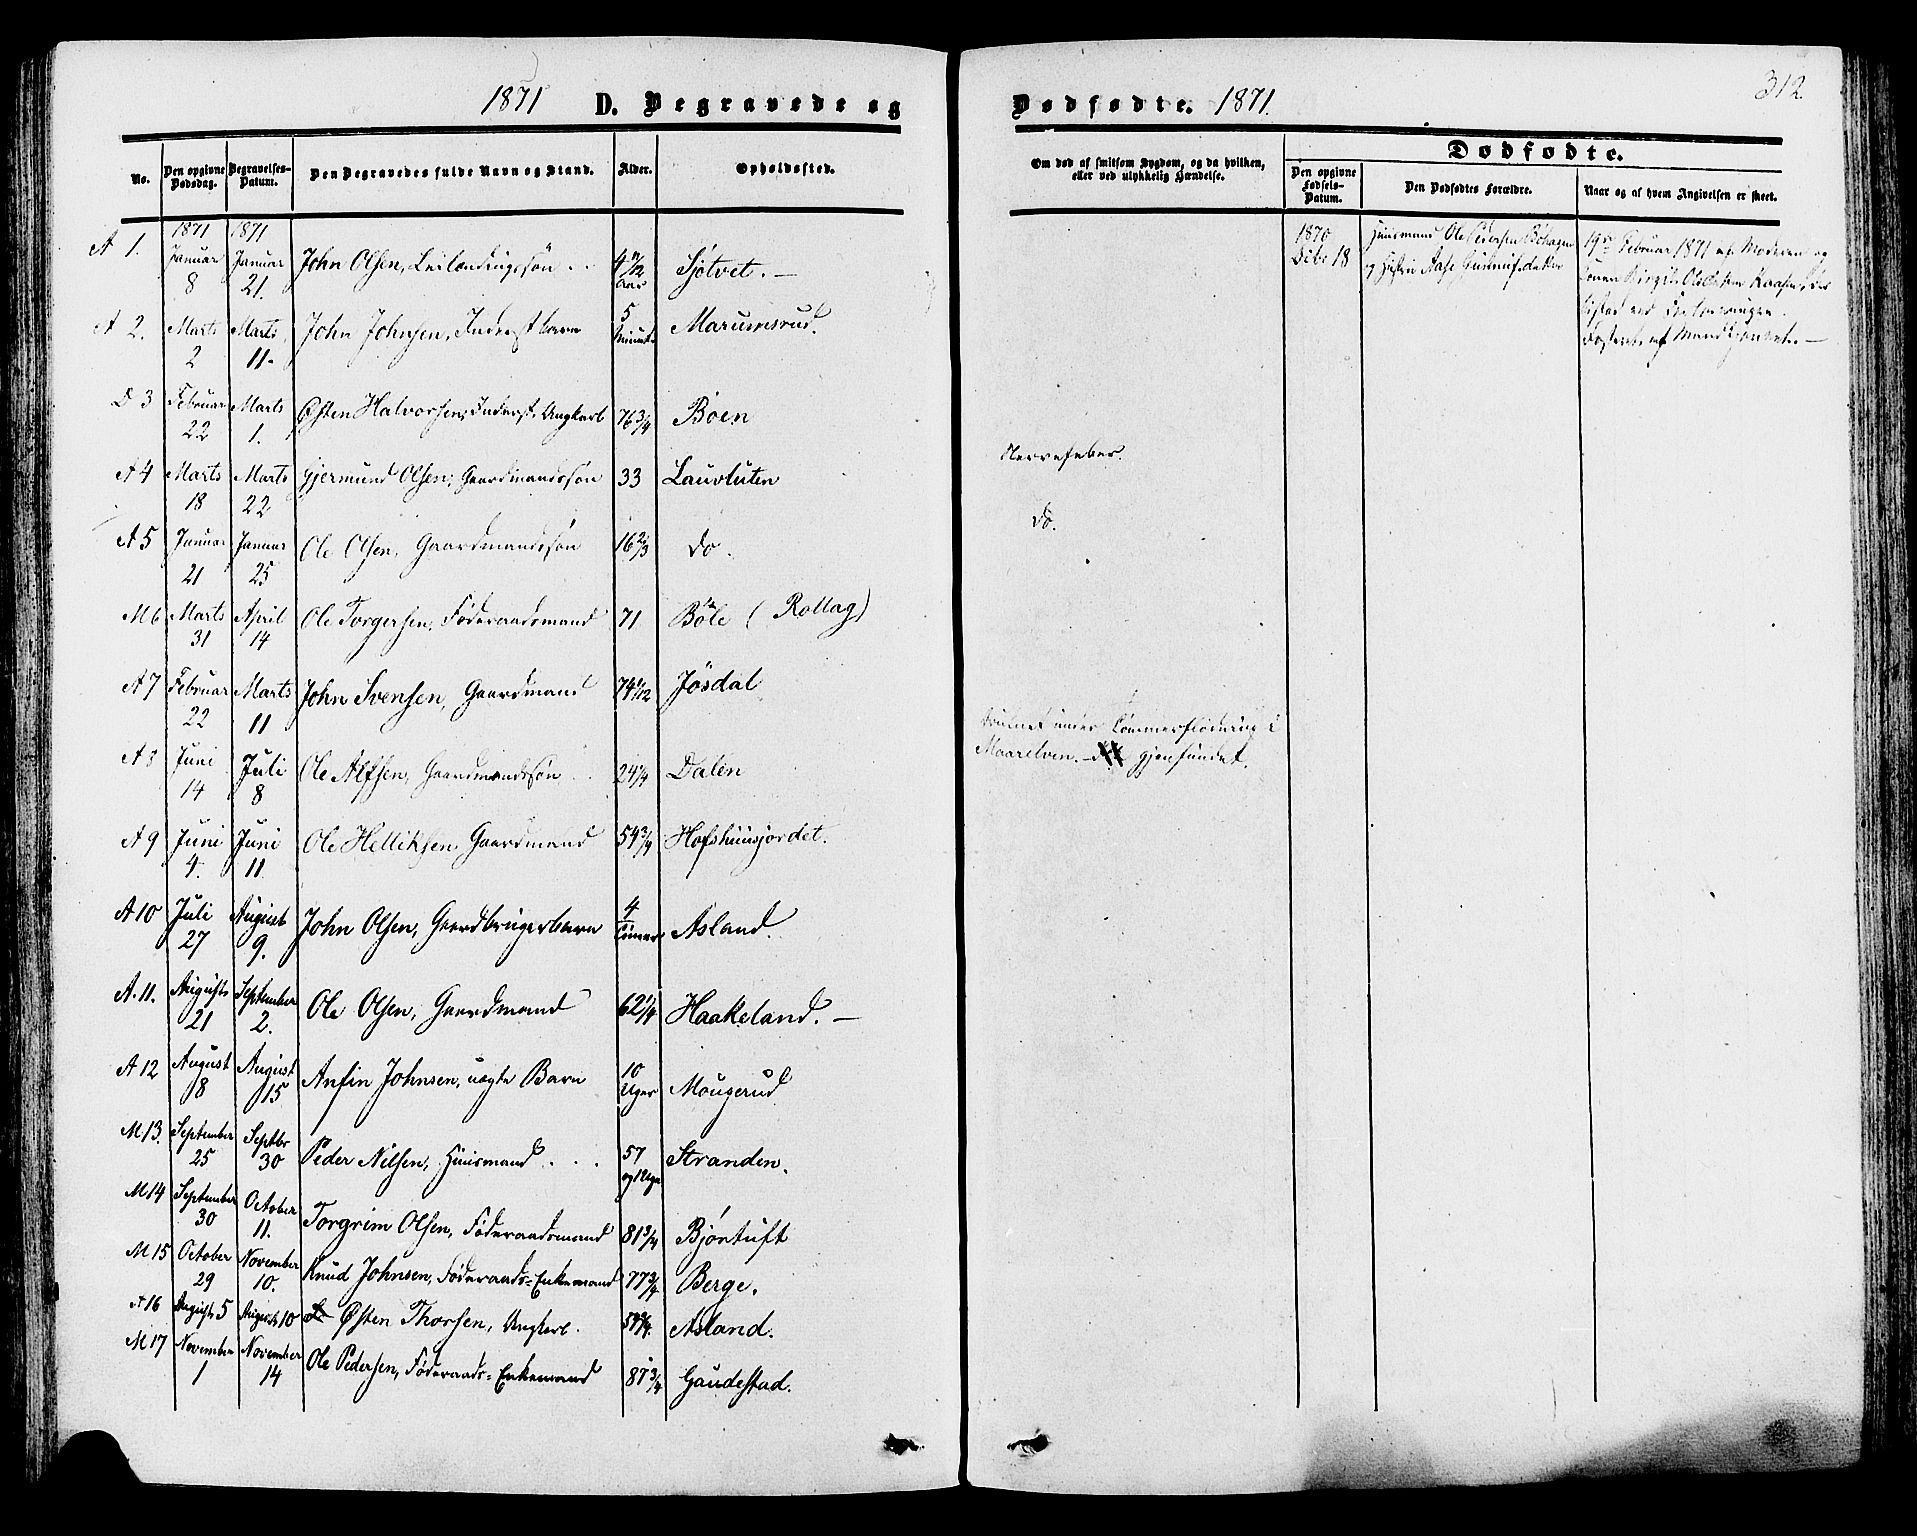 1871 D. Begravede og
Dødfødte. 1871. 312.
No. Den opgivne Dødsdag. Begravelses-Datum. Den Begravedes fulde Navn og Stand. Alder. Opholdssted.
Om død af smitsom Sygdom, og da hvilken, eller ved ulykkelig Hændelse.
Dødfødte.
Den opgivne Fødsels-Datum. Den Dødfødtes Forældre. Naar og af hvem Angivelsen er skeet.
1871 1871
A 1. Januar 8 Januar 21. John Olsen, Leilændingssøn 4 11/12 aar Sjotvet.
A 2. Marts 2 Marts 11. John Johnsen, Inderstbarn 5 Minut. Marumsrud.
D 3 Februar 22 Marts 1. Østen Halvorsen, Inderst, Ungkarl 76 3/4 Böen
A 4 Marts 18 Marts 22 Gjermund Olsen, Gaardmandssøn 33 Lauvluten Nervefeber.
A 5 Januar 21 Januar 25 Ole Olsen, Gaardmandssøn 16 2/3 do. do.
M 6 Marts 31 April 14 Ole Torgersen, Föderaadsmand 71 Böle (Rollag)
A 7 Februar 22 Marts 11 John Svensen, Gaardmand 74 1/12 Jösdal
A 8 Juni 14 Juli 8 Ole Alfsen, Gaardmandssøn 24 1/4 Dalen
druknet under Tømmerflødning i
Maarelven. gjenfundet.
A 9 Juni 4. Juni 11. Ole Helliksen, Gaardmand 54 3/4 Hofshuusjordet.
A 10 Juli 27 August 9. John Olsen, Gaardbrugerbarn 4 Timer Asland.
A. 11. Augusts 21 September 2. Ole Olsen, Gaardmand 62 1/4 Haakeland.
A 12 August 8 August 15 Anfin Johnsen, uægte Barn 10 Uger Mougerud
M. 13. September 25 Septbr 30 Peder Nilsen, Huusmand 57 og 1 Uge Stranden.
M 14 September 30 October 11. Torgrim Olsen, Föderaadsmand 81 3/4 Bjöntuft
M 15 October 29 November 10. Knud Johnsen, Föderaads-Enkemand 77 3/4 Berge.
A 16 Augusts 5 Augusts 10 Østen Thorsen, Ungkarl. Asland.
M 17 November 1 November 14 Ole Pedersen, Föderaads-Enkemand 87 3/4 Gaudestad.
1870 Decbr 18
Huusmand Ole Pedersen Böhagen
og Hustru Aase Gunnufsdatter
19de Februar 1871 af Moderen og
Konen Birgit Olsdatter
tilsted ved
Fosteret af Mandkjønnet.